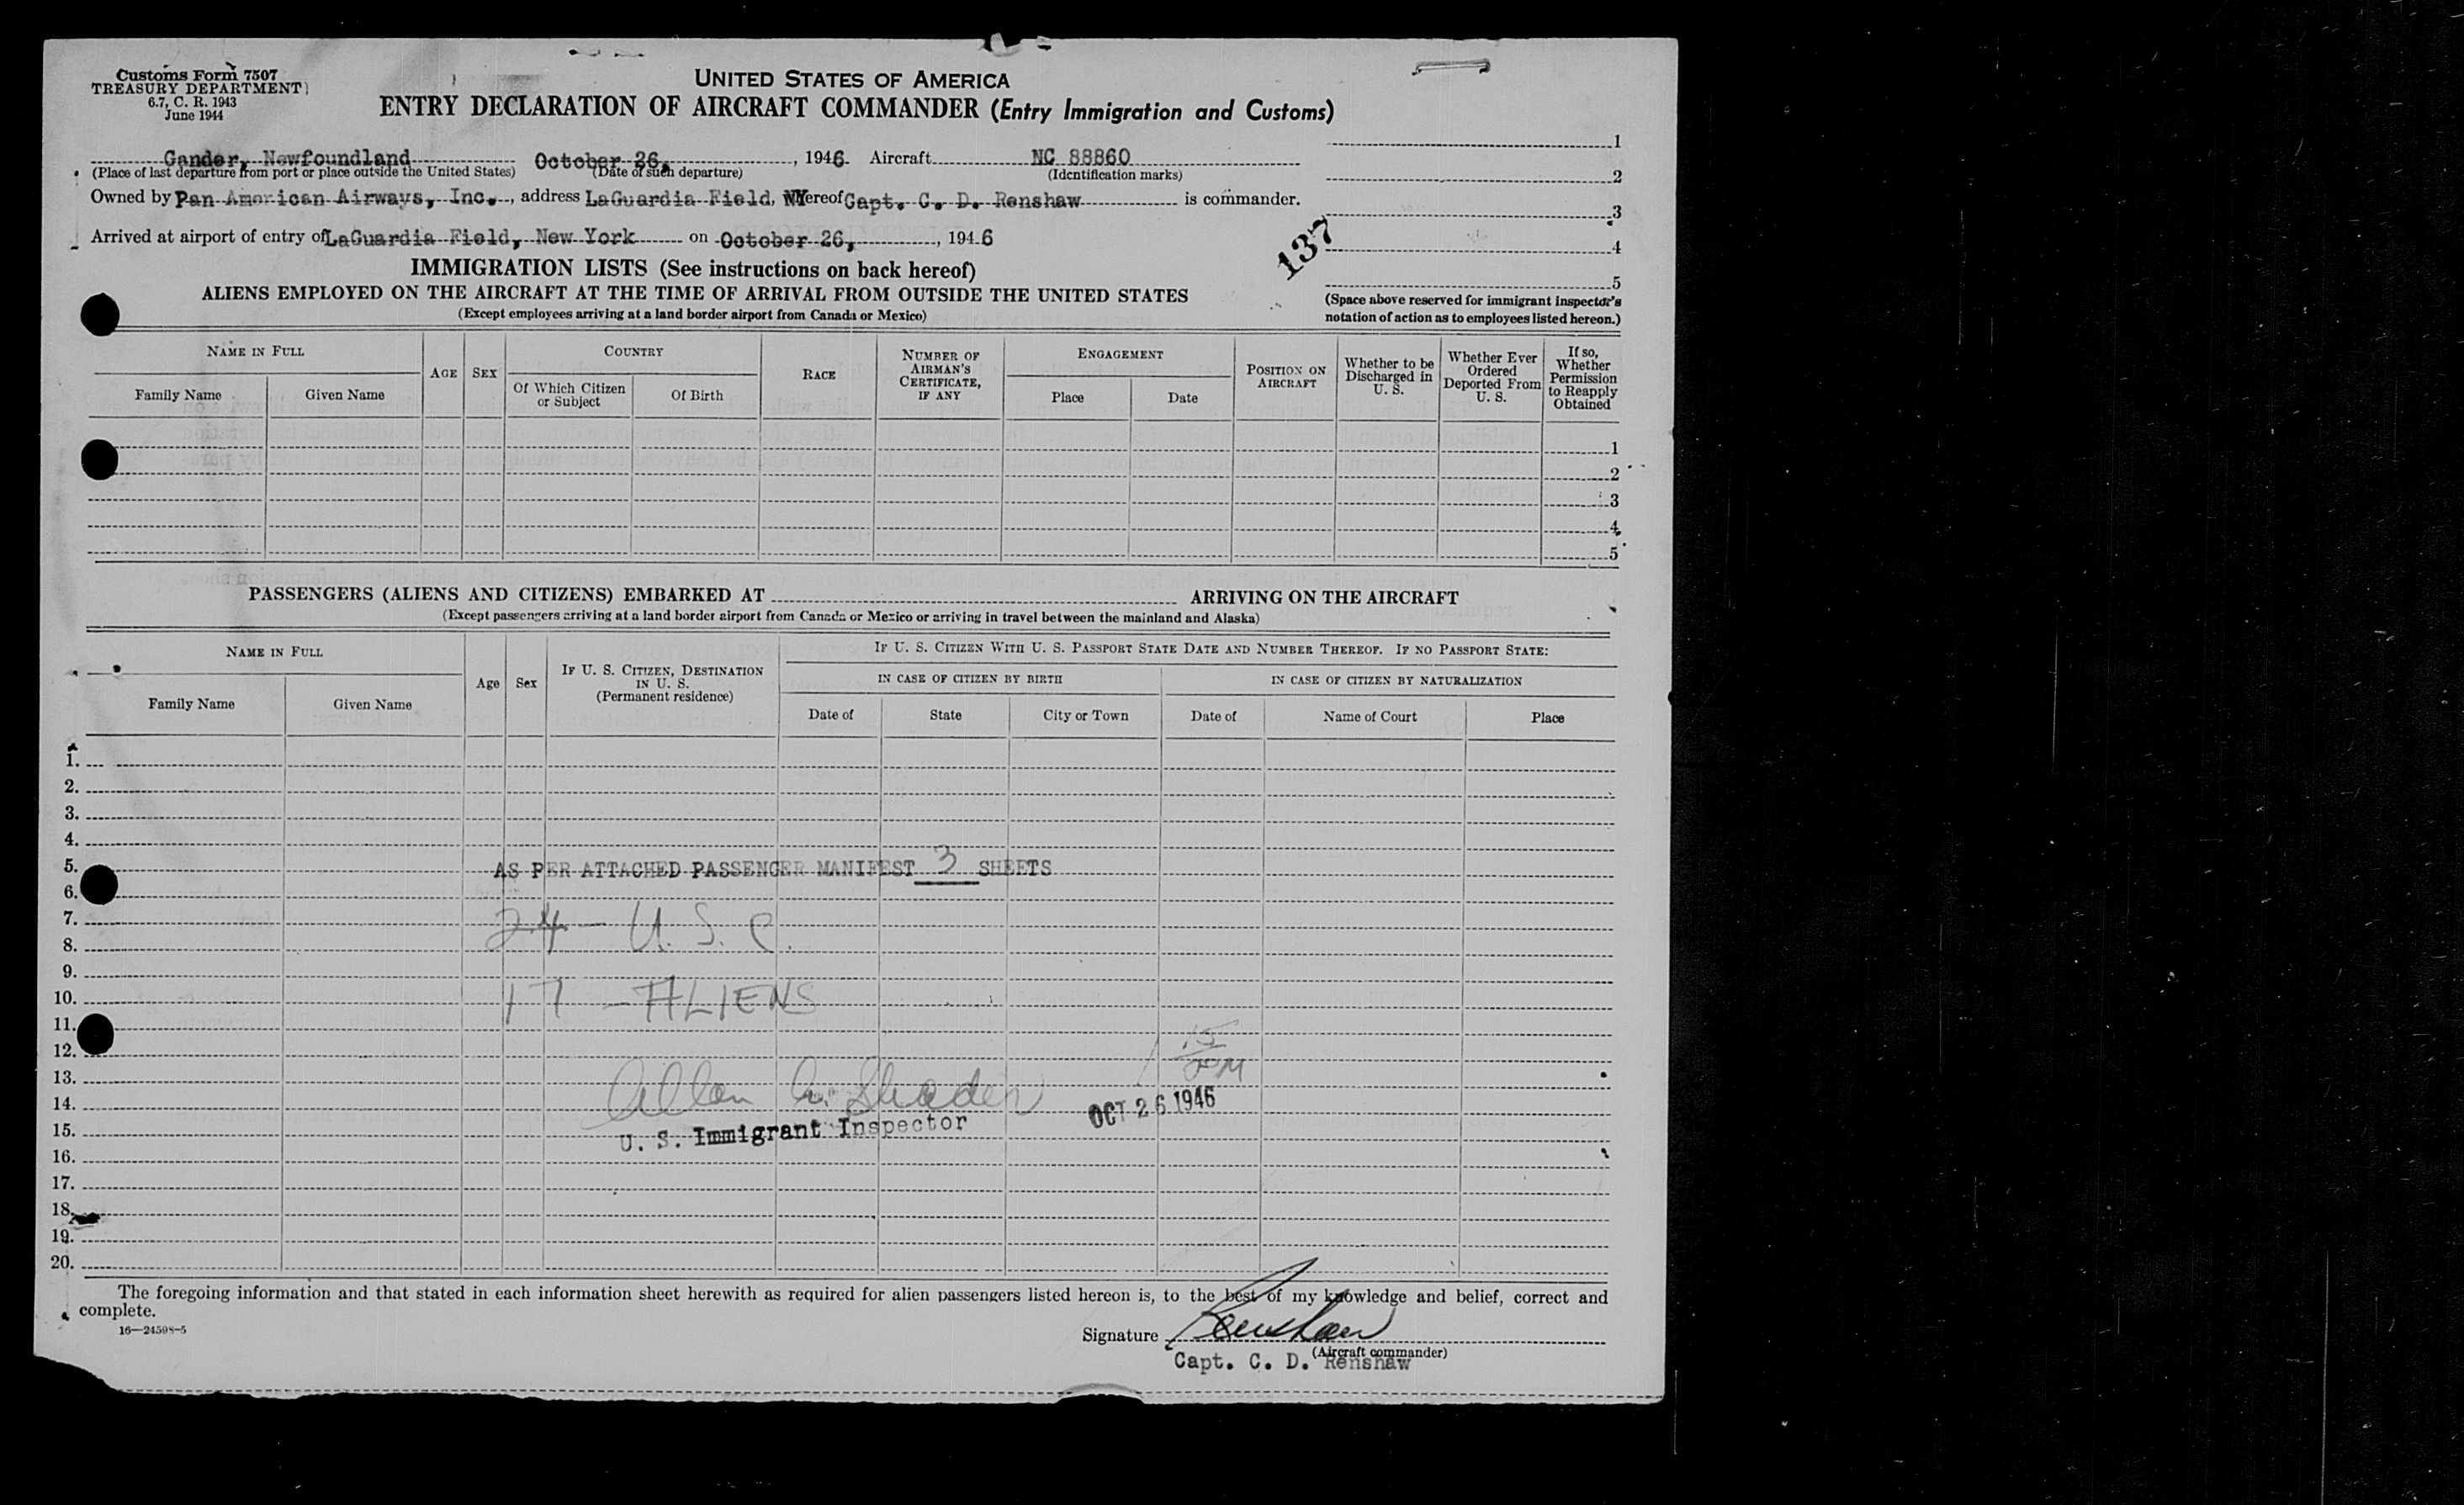 Customs Form 7507
TREASURY DEPARTMENT
6.7, C. R. 1943
June 1944
UNITED STATES OF AMERICA
ENTRY DECLARATION OF AIRCRAFT COMMANDER (Entry Immigration and Customs)
Gander, Newfoundland October 26, , 1946 Aircraft NC 88860
(Place of last departure from port or place outside the United States) (Date of such departure) (Identification marks)
Owned by Pan American Airways, Inc. , address LaGuardia Field, NY ereof Capt. C. D. Renshaw is commander.
Arrived at airport of entry of LaGuardia Field, New York on October 26, , 1946
1
2
3
4
5
137
(Space above reserved for immigrant inspector's
notation of action as to employees listed hereon.)
IMMIGRATION LISTS (See instructions on back hereof)
ALIENS EMPLOYED ON THE AIRCRAFT AT THE TIME OF ARRIVAL FROM OUTSIDE THE UNITED STATES
(Except employees arriving at a land border airport from Canada or Mexico)
NAME IN FULL
Family Name Given Name
AGE SEX
COUNTRY
Of Which Citizen or Subject Of Birth
RACE
NUMBER OF AIRMAN'S CERTIFICATE, IF ANY
ENGAGEMENT
Place Date
POSITION ON AIRCRAFT
Whether to be Discharged in U. S.
Whether Ever Ordered Deported From U. S.
If so, Whether Permission to Reapply Obtained
1
2
3
4
5
PASSENGERS (ALIENS AND CITIZENS) EMBARKED AT ARRIVING ON THE AIRCRAFT
(Except passengers arriving at a land border airport from Canada or Mexico or arriving in travel between the mainland and Alaska)
NAME IN FULL
Family Name Given Name
Age Sex
IF U. S. CITIZEN, DESTINATION IN U. S. (Permanent residence)
IF U. S. CITIZEN WITH U. S. PASSPORT STATE DATE AND NUMBER THEREOF. IF NO PASSPORT STATE:
IN CASE OF CITIZEN BY BIRTH IN CASE OF CITIZEN BY NATURALIZATION
Date of State City or Town Date of Name of Court Place
1.
2.
3.
4.
5. AS PER ATTACHED PASSENGER MANIFEST 3 SHEETS
6.
7. 24 - U. S. C.
8.
9.
10. 17 - ALIENS
11.
12.
13.
14. OCT 26 1946
15. U. S. Immigrant Inspector
16.
17.
18.
19.
20.
The foregoing information and that stated in each information sheet herewith as required for alien passengers listed hereon is, to the best of my knowledge and belief, correct and
complete.
16—24598-5
Signature Renshaw
(Aircraft commander)
Capt. C. D. Renshaw